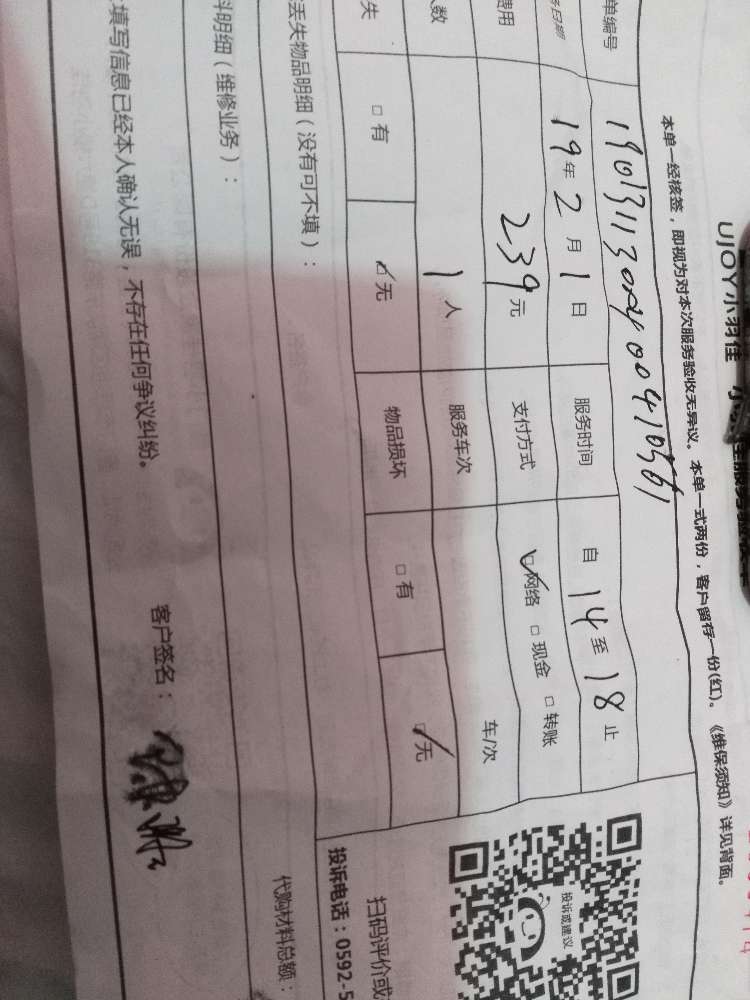 UJOY小羽佳
本单一经核签，即视为对本次服务验收无异议。本单一式两份，客户留存一份(红)。《维保须知》详见背面。
单编号
务日期 19年2月1日 服务时间 自 14 至 18 止
费用 239元 支付方式 □网络 □现金 □转账
数 1人 服务车次 车/次
失 □有 □无 物品损坏 □有 □无
丢失物品明细（没有可不填）：
料明细（维修业务）：
代购材料总额：
填写信息已经本人确认无误，不存在任何争议纠纷。
客户签名：
投诉或建议
扫码评价或
投诉电话：0592-5